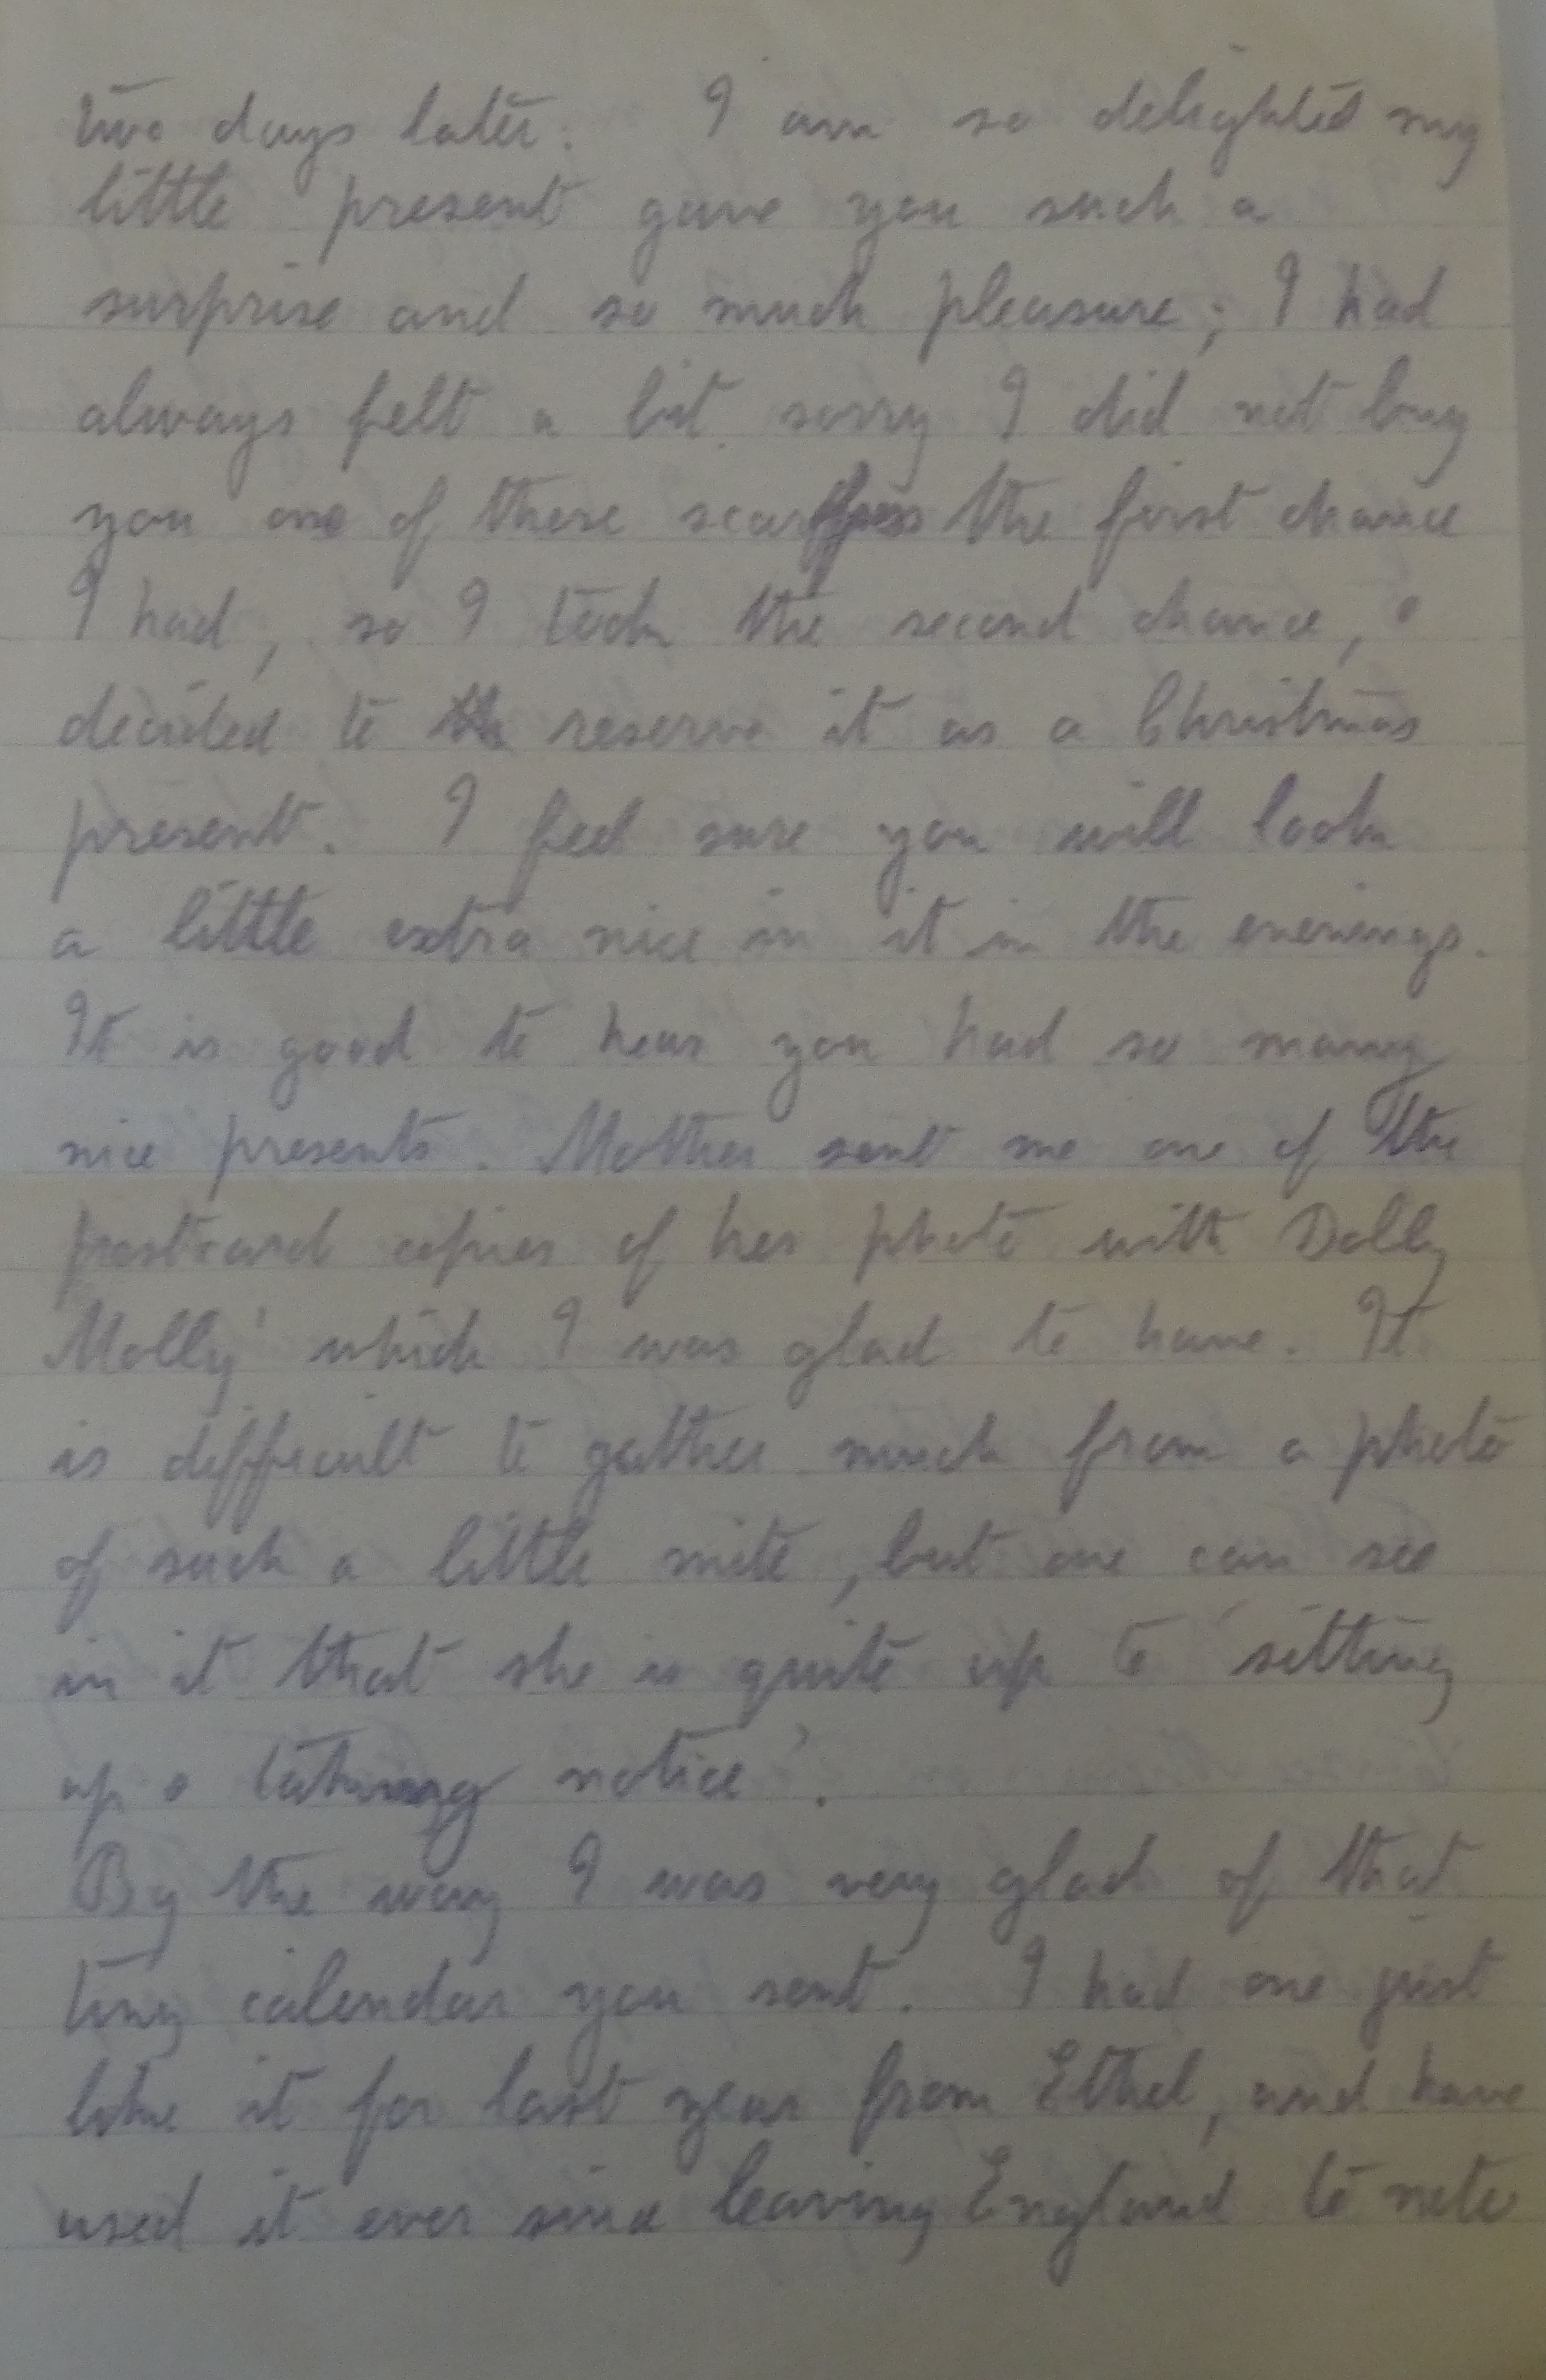 two days later. I am so delighted my
little present gave you such a
surprise and so much pleasure; I had
always felt a bit sorry I did not buy
you one of these the first chance
I had, so I took the second chance, &
decided to reserve it as a Christmas
present. I feel sure you will look
a little extra nice in it in the evenings.
It is good to hear you had so many
nice presents. Mother sent me one of the
postcard copies of her photo with Dolly
Molly' which I was glad to have. It
is difficult to gather much from a photo
of such a little mite, but one can see
in it that she is quite up to 'sitting
up & taking notice'.
By the way I was very glad of that
tiny calendar you sent. I had one just
like it for last year from Ethel, and have
used it ever since leaving England to note